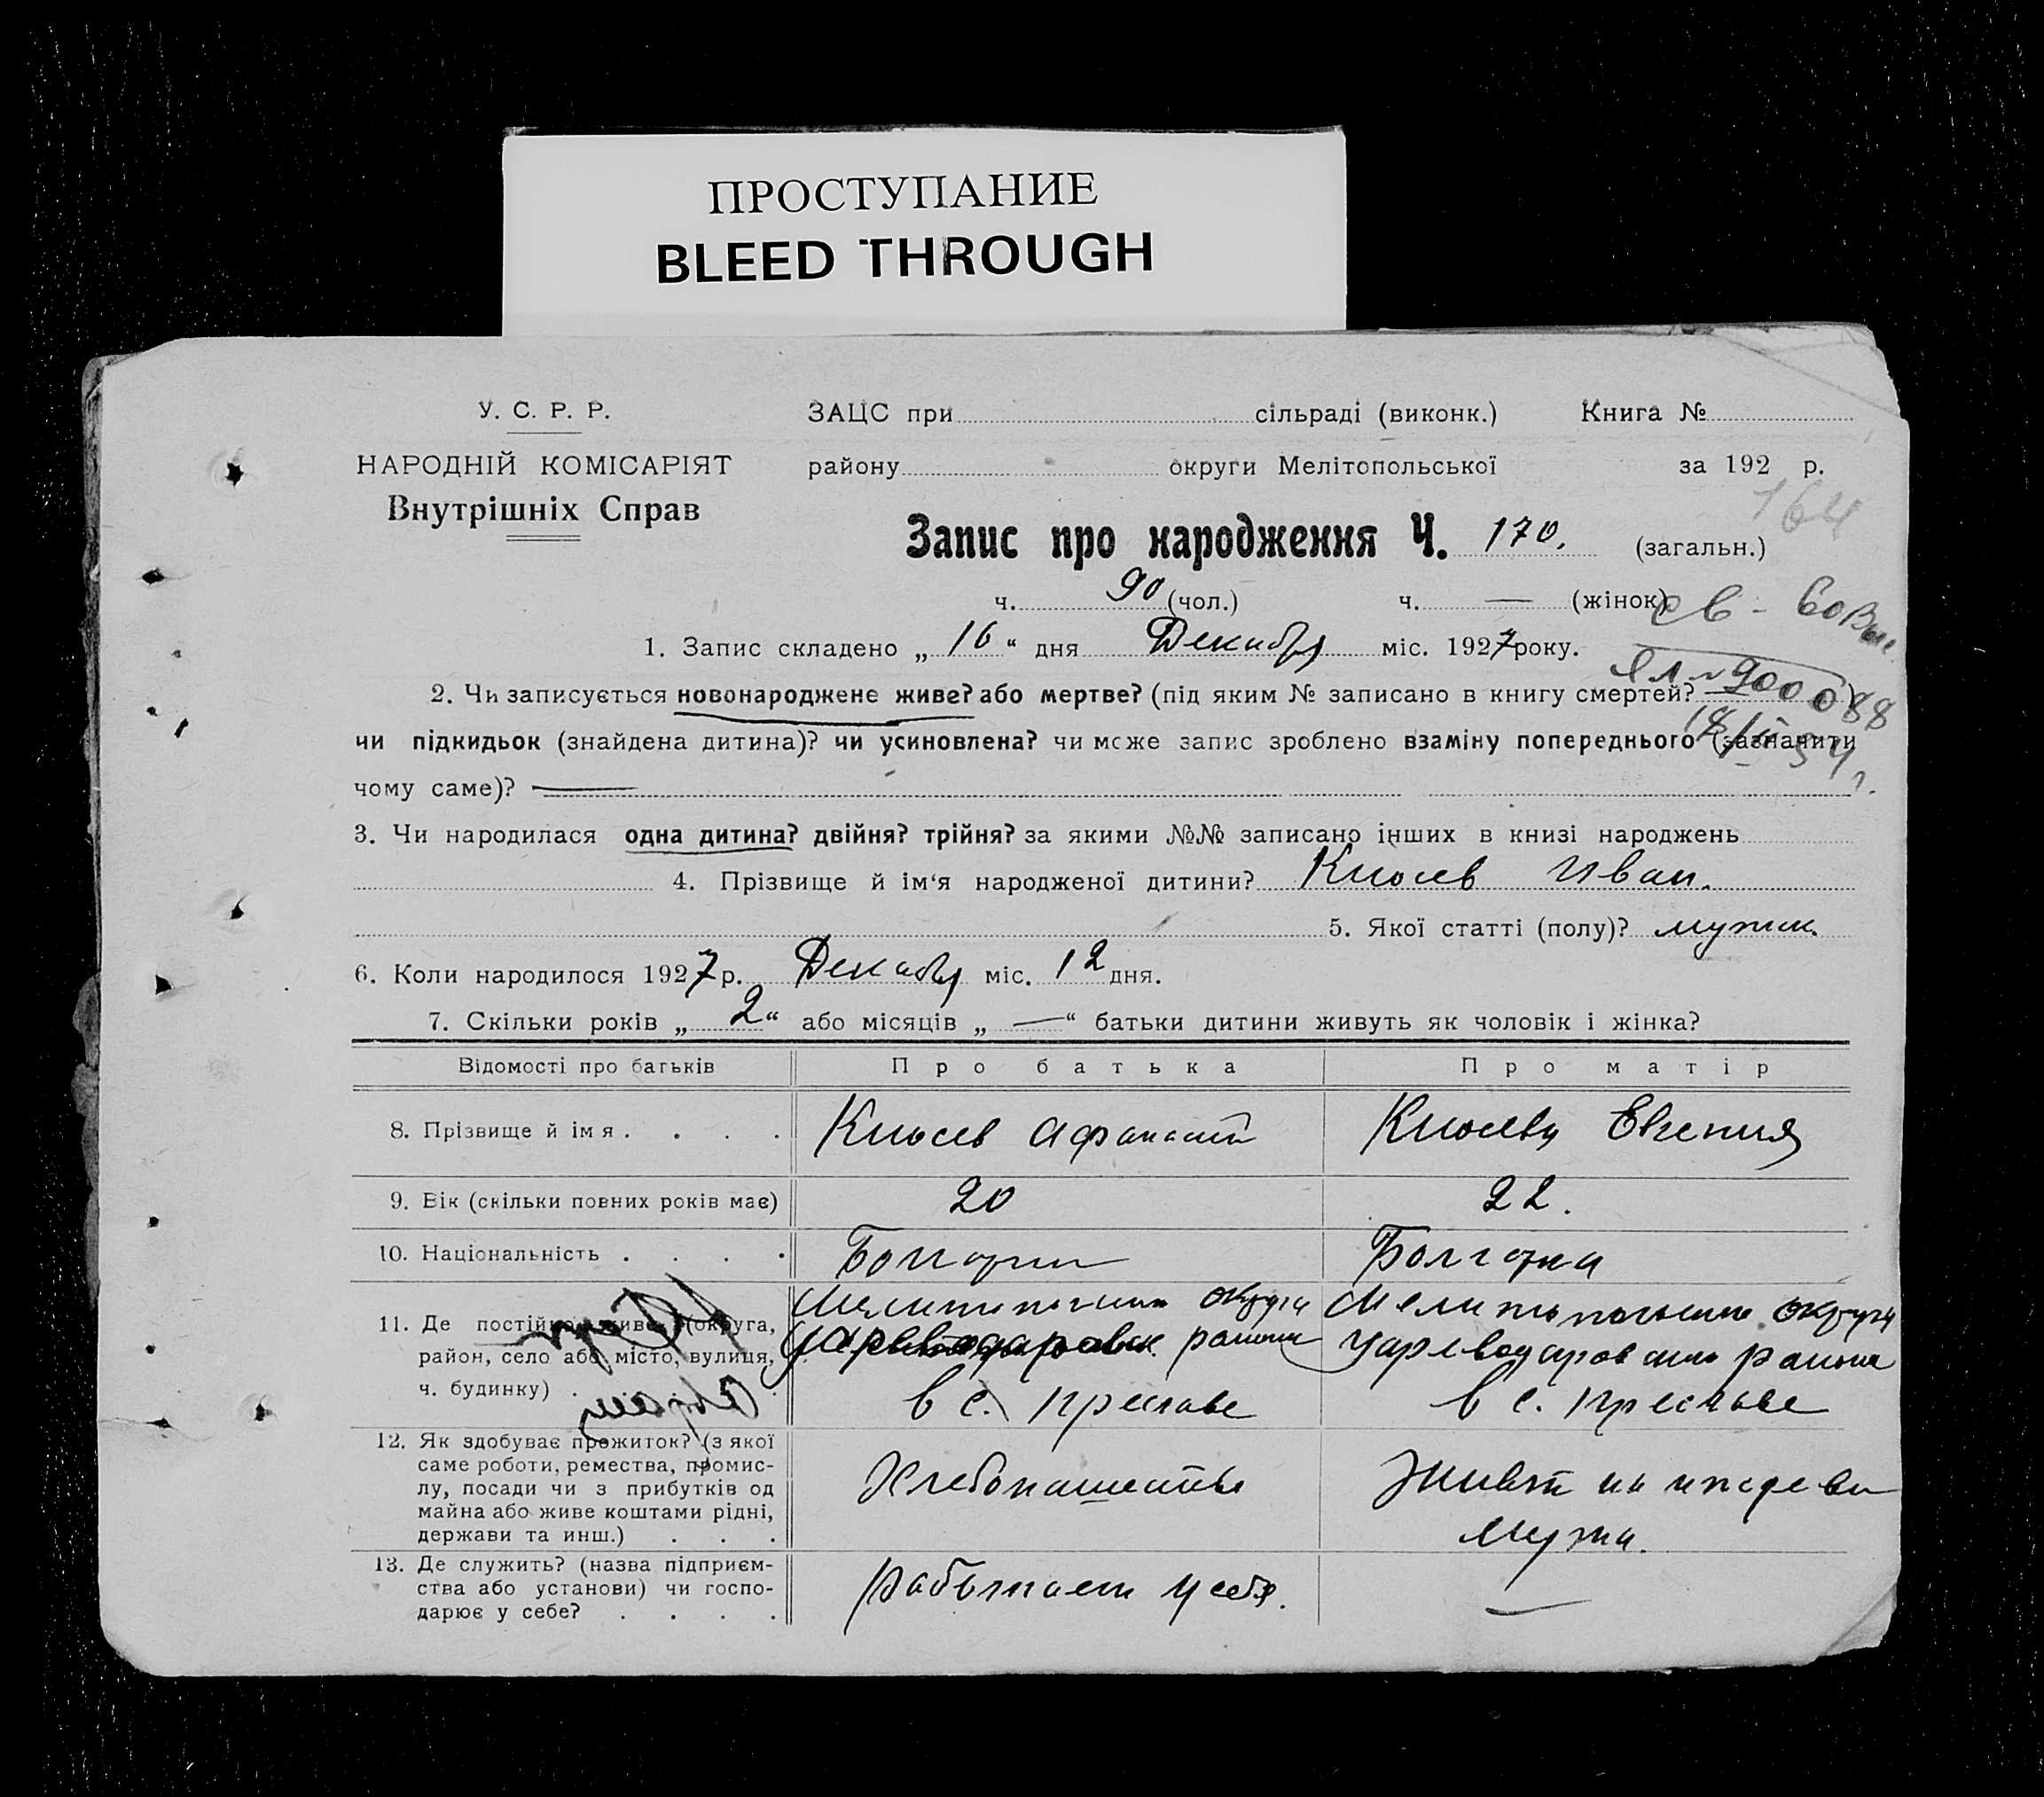 ПРОСТУПАНИЕ
BLEED THROUGH
У. С. Р. Р.
НАРОДНІЙ КОМІСАРІЯТ
Внутрішніх Справ
ЗАЦС при сільраді (виконк.) Книга №
району округи Мелітопольської за 192 р.
164
Запис про народження Ч. 170. (загальн.)
ч. 90 (чол.) ч. — (жінок)
1. Запис складено „16“ дня Декабря міс. 1927 року.
2. Чи записується новонароджене живе? або мертве? (під яким № записано в книгу смертей?
чи підкидьок (знайдена дитина)? чи усиновлена? чи може запис зроблено взаміну попереднього (зазначити
чому саме)? —
3. Чи народилася одна дитина? двійня? трійня? за якими №№ записано інших в книзі народжень
4. Прізвище й ім‘я народженої дитини? Киосев Иван.
5. Якої статті (полу)? мужск.
6. Коли народилося 1927 р. Декабря міс. 12 дня.
7. Скільки років „2“ або місяців „—“ батьки дитини живуть як чоловік і жінка?
Відомості про батьків Про батька Про матір
8. Прізвище й імя . . . . Киосев Афанасий Киосева Евгения
9. Вік (скільки повних років має) 20 22.
10. Національність . . . . Болгарин Болгарка
11. Де постійно живе (округа,
район, село або місто, вулиця,
ч. будинку) . .
Мелитопольск округа
Цареводаровск района
в с. Преславе
Мелитопольск округа
Цареводаровск района
в с. Преславе
12. Як здобуває прожиток? (з якої
саме роботи, ремества, промис-
лу, посади чи з прибутків од
майна або живе коштами рідні,
держави та инш.) . . .
Хлебопашество
Живет на иждевен
мужа.
13. Де служить? (назва підприєм-
ства або установи) чи госпо-
дарює у себе? . . . .
Работает у себя.
—